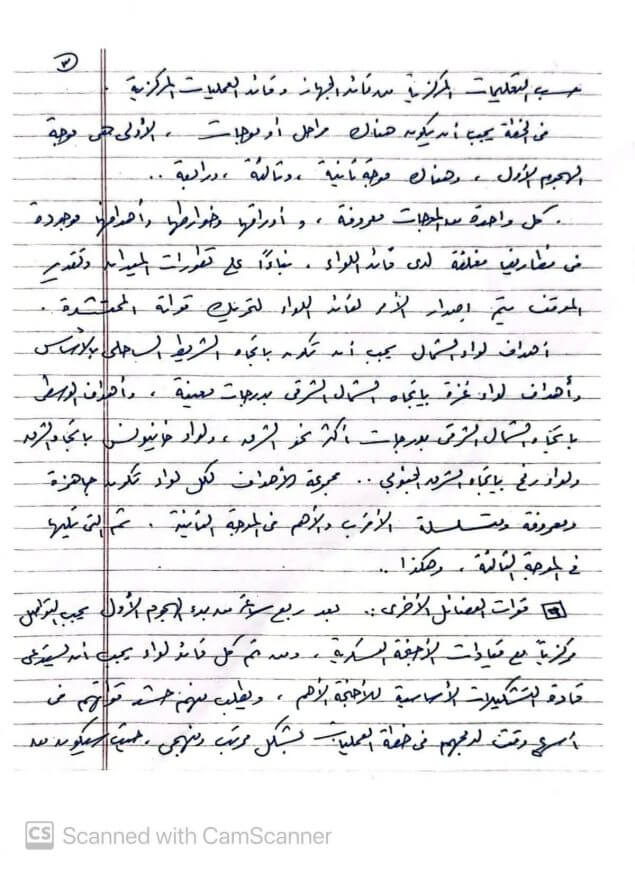 ٣
حسب التعليمات المركزية من قائد الجهاز وقائد العمليات المركزية .
في الخطة يجب أن يكون هناك مراحل أو موجات ، الأولى هي موجة
الهجوم الأول ، وهناك موجة ثانية ، وثالثة ، ورابعة ..
. كل واحدة من الموجات معروفة ، و أوراقها وخوارطها وأهدافها موجودة
في مظاريف مغلقة لدى قائد اللواء . بناءاً على تطورات الميدان وتقدير
الموقف يتم إصدار الأمر لقائد اللواء لتحريك قواته المحتشدة .
أهداف لواء الشمال يجب أن تكون باتجاه الشريط الساحلي بالأساس
وأهداف لواء غزة باتجاه الشمال الشرقي بدرجات معينة ، وأهداف الوسطى
باتجاه الشمال الشرقي بدرجات أكثر نحو الشرق ، ولواء خانيونس باتجاه الشرق
ولواء رفح باتجاه الشرق الجنوبي .. مجموعة الأهداف لكل لواء تكون جاهزة
ومعروفة ومتسلسلة الأقرب والأهم في الموجة الثانية . ثم التي تليها
في الموجة الثالثة ، وهكذا ..
قوات الفصائل الأخرى :. بعد ربع ساعة من بدء الهجوم الأول يجب التواصل
مركزياً مع قيادات الأجنحة العسكرية ، ومن ثم كل قائد لواء يجب أن يستدعي
قادة التشكيلات الأساسية للأجنحة الأهم ، ويطلب منهم حشد قواتهم في
أسرع وقت لدمجهم في خطة العمليات بشكل مرتب ومنهجي ، حيث سيكون من
CS Scanned with CamScanner